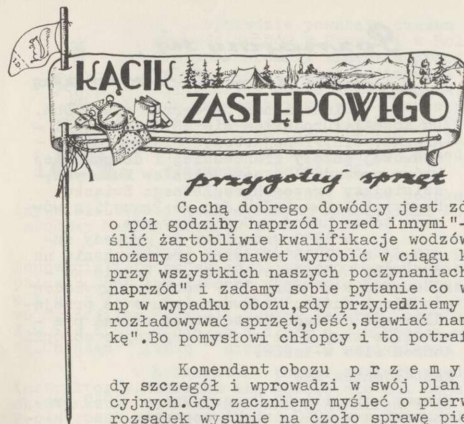 KĄCIK
ZASTĘPOWEGO
przygotuj sprzęt
Cechą dobrego dowódcy jest zd
o pół godziny naprzód przed innymi"-
ślić żartobliwie kwalifikacje wodzów
możemy sobie nawet wyrobić w ciągu k
przy wszystkich naszych poczynaniach
naprzód" i zadamy sobie pytanie co w
np w wypadku obozu,gdy przyjedziemy
rozładowywać sprzęt,jeść,stawiać nam
kę".Bo pomysłowi chłopcy i to potraf
Komendant obozu p r z e m y
dy szczegół i wprowadzi w swój plan
cyjnych.Gdy zaczniemy myśleć o pierw
rozsądek wysunie na czoło sprawę pie